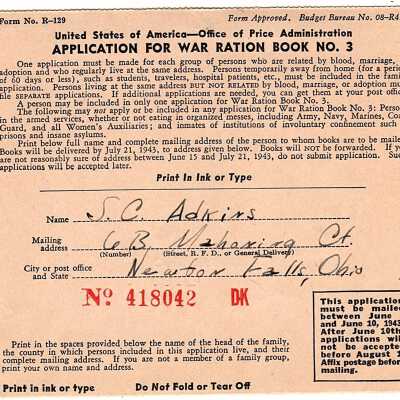 Form No. R-129 Form Approved. Budget Bureau No. 08-R4
United States of America—Office of Price Administration
APPLICATION FOR WAR RATION BOOK NO. 3
One application must be made for each group of persons who are related by blood, marriage,
adoption and who regularly live at the same address. Persons temporarily away from home (for a period
of 60 days or less), such as students, travelers, hospital patients, etc., must be included in the family
application. Persons living at the same address BUT NOT RELATED by blood, marriage, or adoption m
file SEPARATE applications. If additional applications are needed, you can get them at your post off
A person may be included in only one application for War Ration Book No. 3.
The following may not apply or be included in any application for War Ration Book No. 3: Persons
in the armed services, whether or not eating in organized messes, including Army, Navy, Marines, Coast
Guard, and all Women's Auxiliaries; and inmates of institutions of involuntary confinement such as
prisons and insane asylums.
Print below full and complete mailing address of the person to whom books are to be mailed.
Books will be delivered by July 21, 1943, to address given below. Books WILL NOT be forwarded. If you
are not reasonably sure of address between June 15 and July 21, 1943, do not submit application. Such
applications will be accepted later.
Print In Ink or Type
Name S.C. Adkins
Mailing address 6B. Mahoning Ct.
(Number) (Street, R. F. D., or General Delivery)
City or post office and State Newton Falls, Ohio
No 418042 DK
This application
must be mailed
between June
and June 10, 1943
After June 10th
applications will
not be accepted
before August 1
Affix postage before
mailing.
Print in the spaces provided below the name of the head of the family,
the county in which persons included in this application live, and their
complete mailing address. If you are not a member of a family group,
print your own name and address.
Print in ink or type Do Not Fold or Tear Off